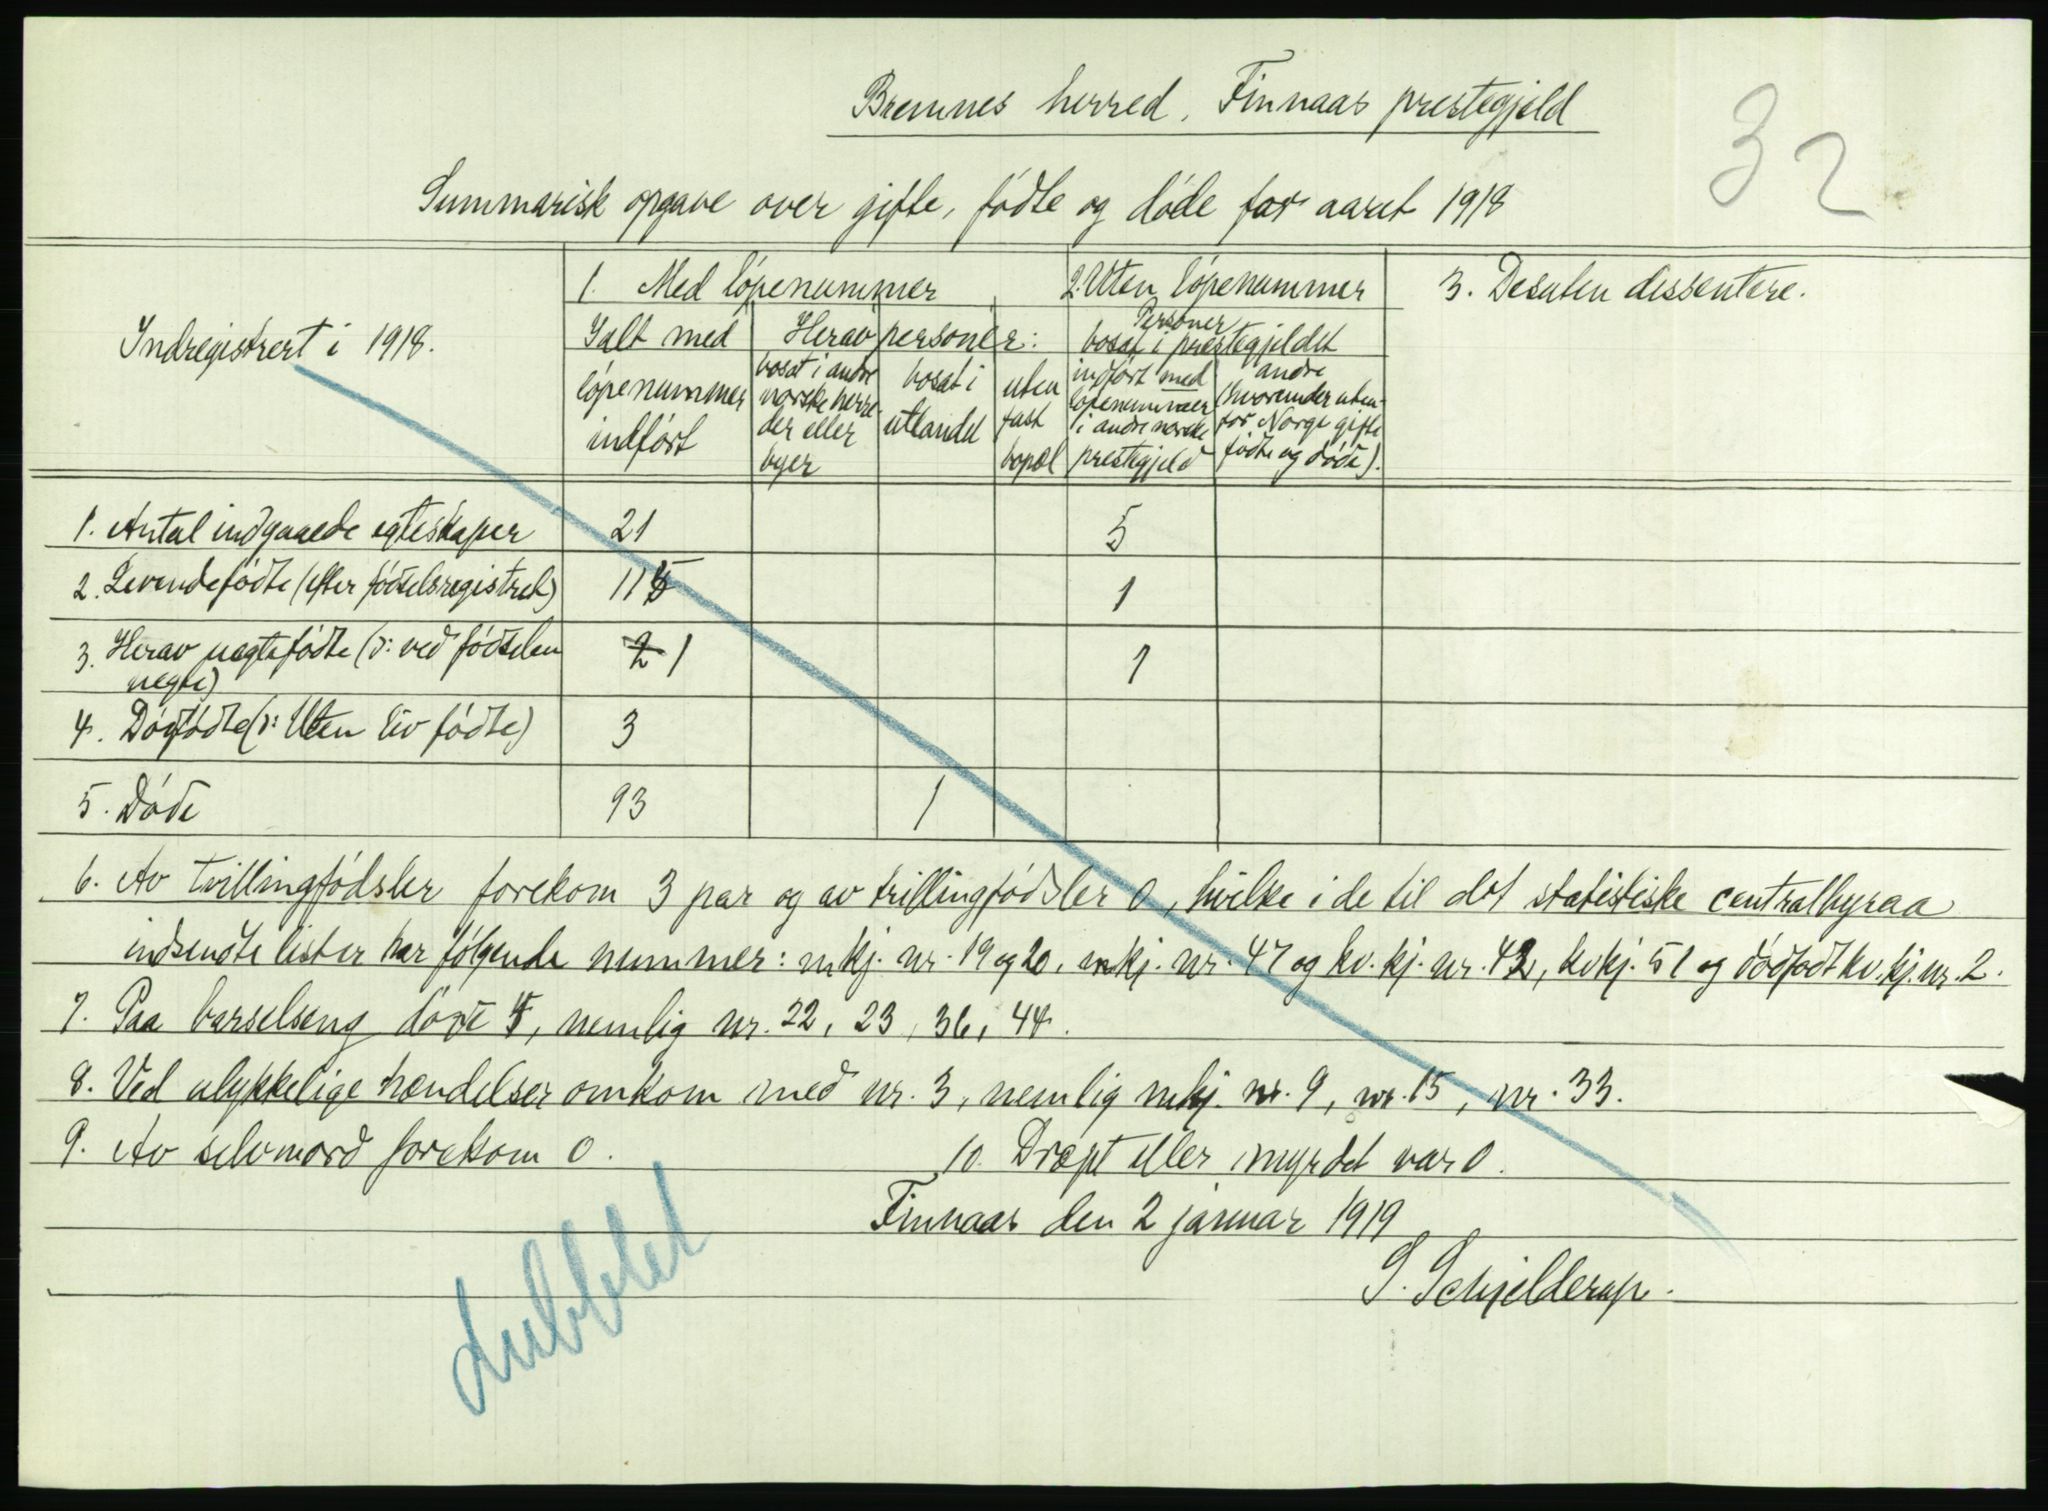 Bremnes herred, Finnaas prestegjeld
32
Summarisk opgave over gifte, fødte og døde for aaret 1918
Indregistrert i 1918.
1. Med løpenummer
2. Uten løpenummer
3. Desuten dissentere.
Ialt med løpenummer indført
Herav personer:
bosat i andre norske herreder eller byer
bosat i utlandet
uten fast bopæl
Personer bosat i prestegjeldet
indført med løpenummer i andre norske prestegjeld
andre (hvorunder utenfor Norge gifte fødte og døde).
1. Antal indgaaede egteskaper 21 5
2. Levendefødte (efter fødselsregistret) 115 1
3. Herav uegtefødte (ɔ: ved fødselen uegte) 2 1 1
4. Dødfødte (ɔ: Uten liv fødte) 3
5. Døde 93 1
6. Av tvillingfødsler forekom 3 par og av trillingfødsler 0, hvilke i de til det statistiske centralbyraa
indsendte lister har følgende nummer: mkj. nr. 19 og 20, mkj. nr. 47 og kv. kj. nr. 42, kvkj. 51 og dødfødt kv. kj. nr. 2.
7. Paa barselseng døde, nemlig nr. 22, 23, 36, 44.
8. Ved ulykkelige hændelser omkom med nr. 3, nemlig mkj. nr. 9, nr. 15, nr. 33.
9. Av selvmord forekom 0.
10. Dræpt eller myrdet var 0.
Finnaas den 2 januar 1919
S. Schjelderup.
dubblet